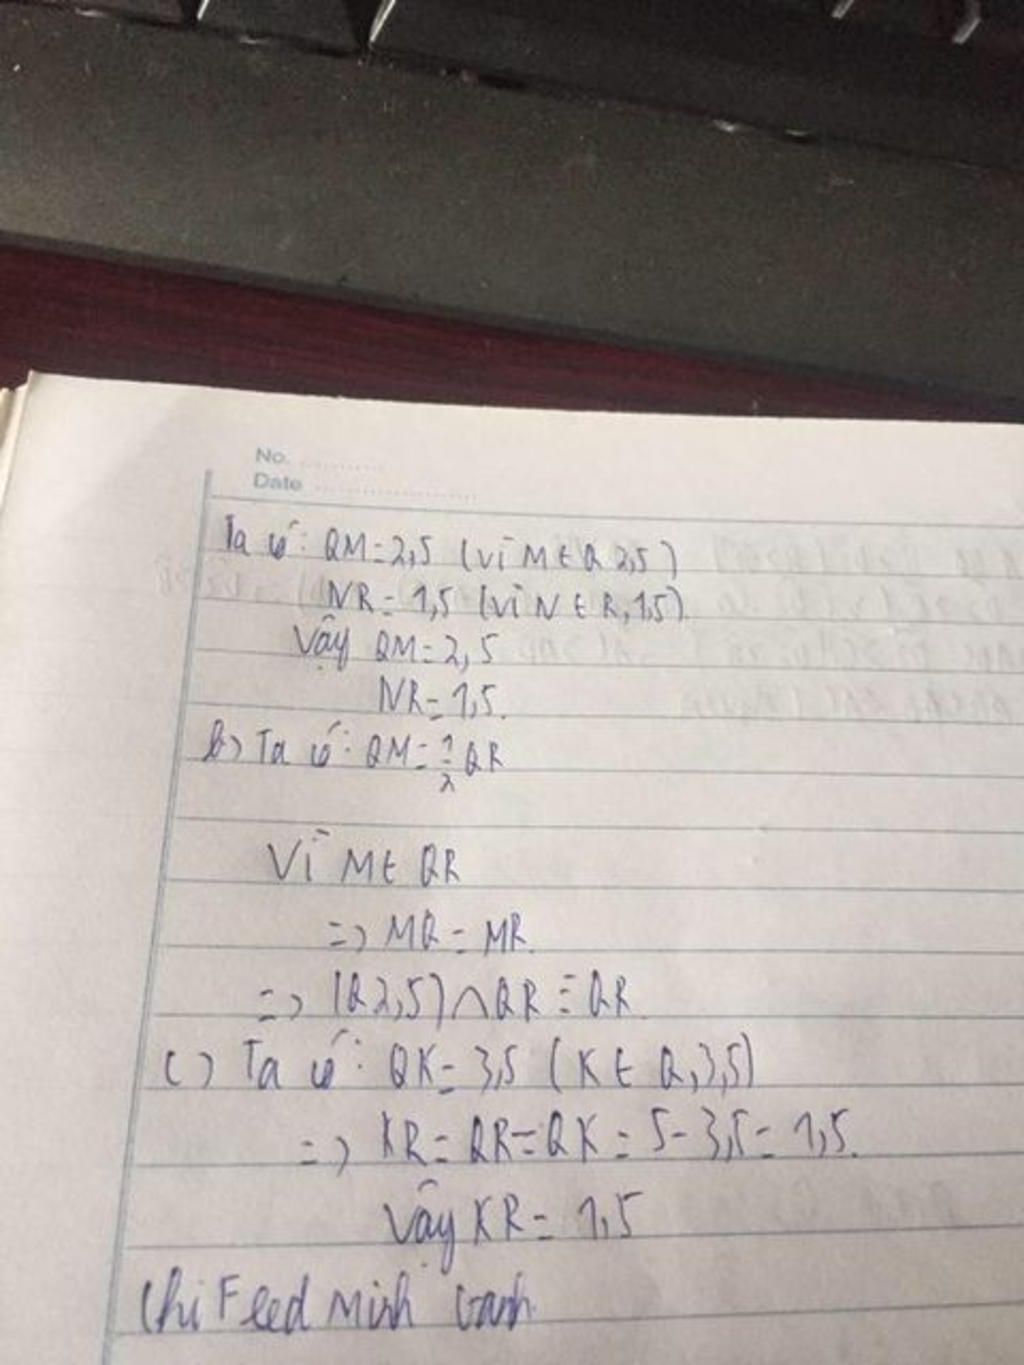 No. ............
Date ........................
Ta có: QM=2,5 (vì M∈Q 2,5)
NR = 1,5 (vì N ∈ R, 1,5)
Vậy QM=2,5
NR=1,5.
b) Ta có: QM=1/2 QR
Vì M∈ QR
=> MQ = MR.
=> (Q2,5)∩QR ≡ QR.
c) Ta có: QK= 3,5 (K∈ Q,3,5)
=> KR= QR-QK = 5-3,5= 1,5.
Vậy KR= 1,5
Feed Minh